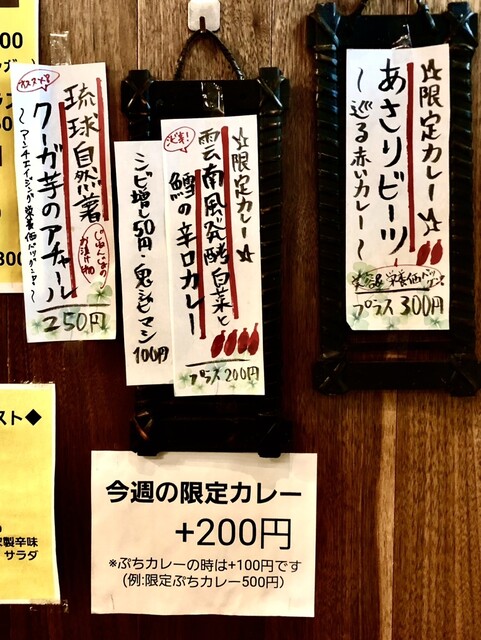 ☆限定カレー☆
あさりビーツ
〜巡る赤いカレー〜
栄養価バツグン!
プラス300円
☆限定カレー☆
雲南風発酵白菜と
鱈の辛口カレー
プラス200円
シビ増し50円・鬼シビマシ
100円
オススメ!
琉球自然薯
クーガ芋のアチャール
〜アンチエイジング栄養価バツグン!〜
250円
今週の限定カレー
+200円
※ぷちカレーの時は+100円です
(例:限定ぷちカレー500円)
スト◆
製辛味
サラダ
00
300